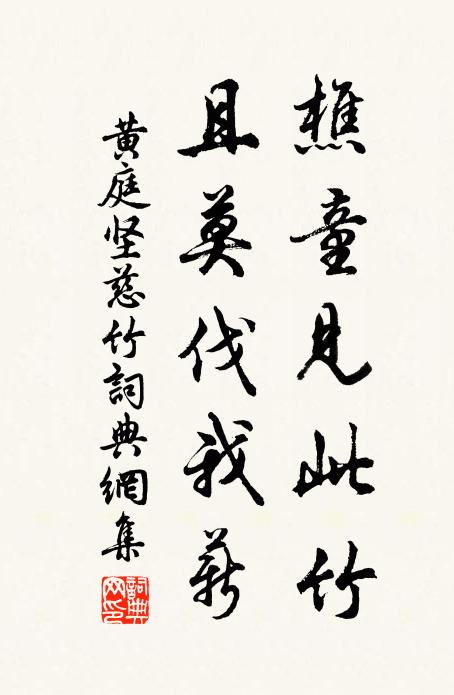 樵童見此竹
且莫伐我薪
黄庭坚慈竹詞典網集
詞典网印